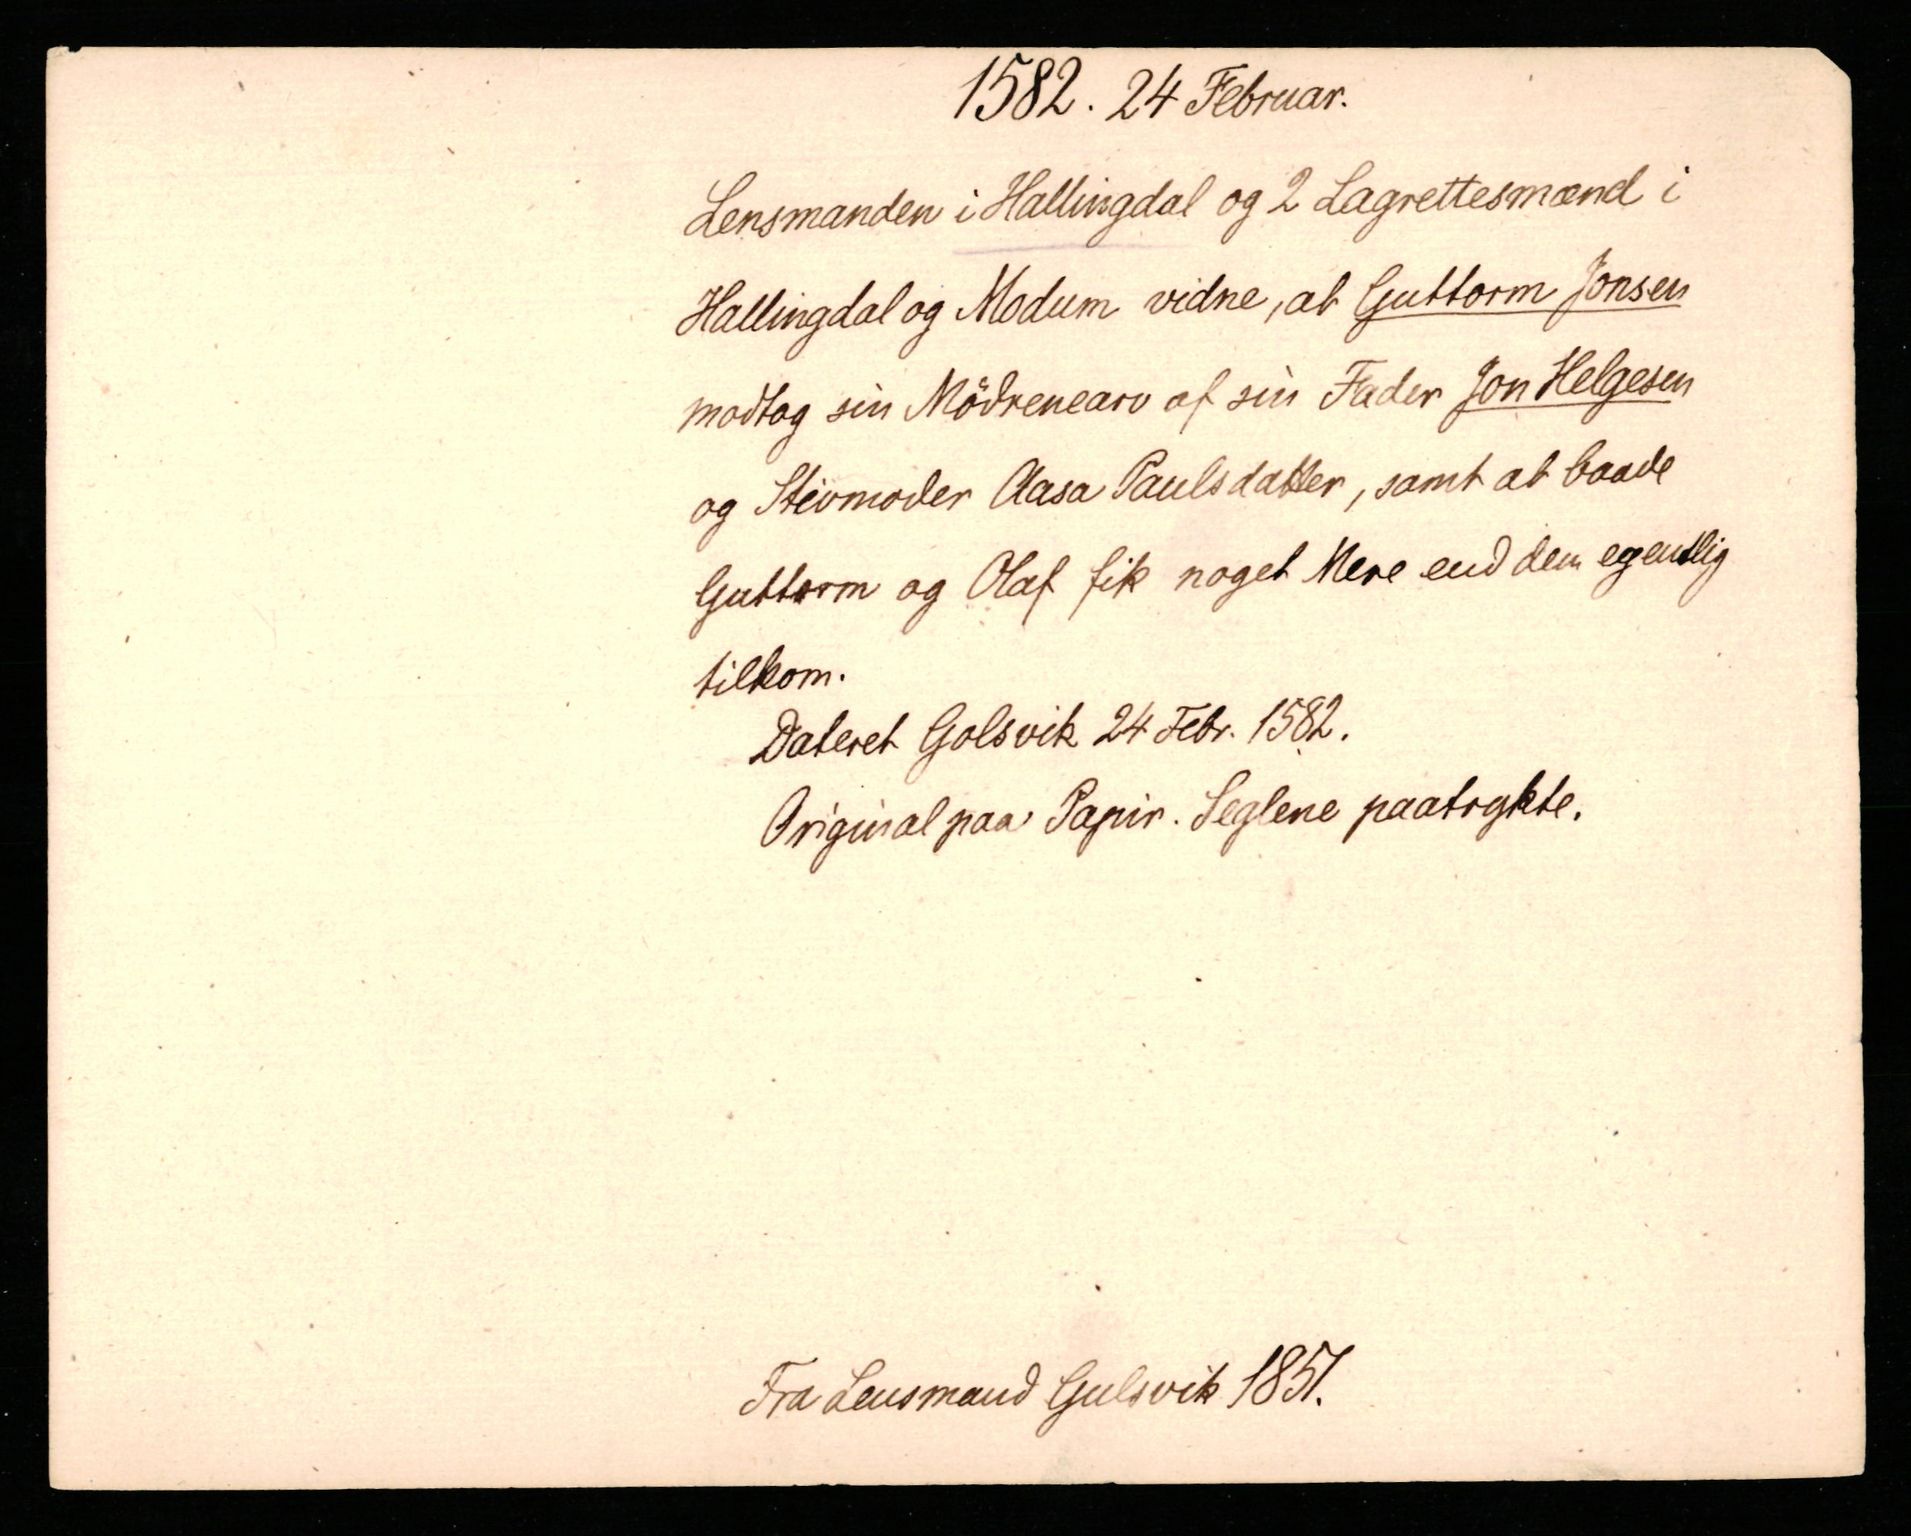 1582. 24 Februar.
Lensmanden i Hallingdal og 2 Lagrettesmænd i
Hallingdal og Modum vidne, at Guttorm Jonsen
modtog sin Mödrenearv af sin Fader Jon Helgesen
og Stivmoder Aasa Paulsdatter, samt at baade
Guttorm og Olaf fik noget Mere end dem egentlig
tilkom.
Dateret Golsvik 24 Febr. 1582.
Original paa Papir. Seglene paatrykte.
Fra Lensmand Gulsvik 1851.